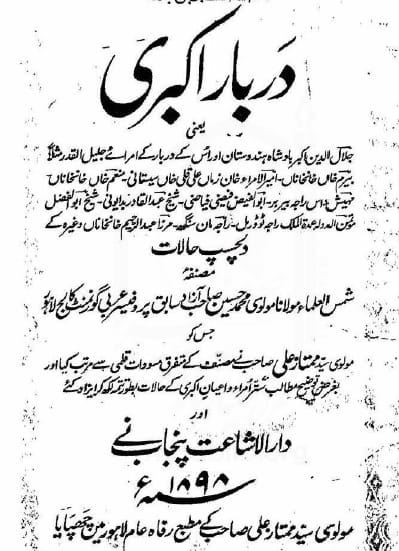 دربار اکبری
یعنی
جلال الدین اکبر بادشاہ ہندوستان اور اُس کے دربار کے امرائے جلیل القدر مثلاً
بیرم خاں خانخاناں - امیر الامراء خان زماں علی قلی خاں سیستانی - منعم خاں خانخاناں
مہیش داس راجہ بیربر - ابوالفیض فیضی فیاضی - شیخ عبدالقادر بدایونی - شیخ ابوالفضل
موتمن الدولہ عمدۃ الملک راجہ ٹوڈرمل - راجہ مان سنگھ - مرزا عبدالرحیم خانخاناں وغیرہ کے
دلچسپ حالات
مصنفہ
شمس العلماء مولانا مولوی محمد حسین صاحب آزاد سابق پروفیسر عربی گورنمنٹ کالج لاہور
جس کو
مولوی سید ممتاز علی صاحب نے مصنف کے متفرق مسودات قلمی سے مرتب کیا اور
بغرض توضیح مطالب ستر اُمراء و اعیان اکبری کے حالات بطور تتمہ لکھ کر ایزاد کئے
اور
دارالاشاعت پنجاب نے
سنہ ۱۸۹۸ء
مولوی سید ممتاز علی صاحب کے مطبع رفاہ عام لاہور میں چھپایا